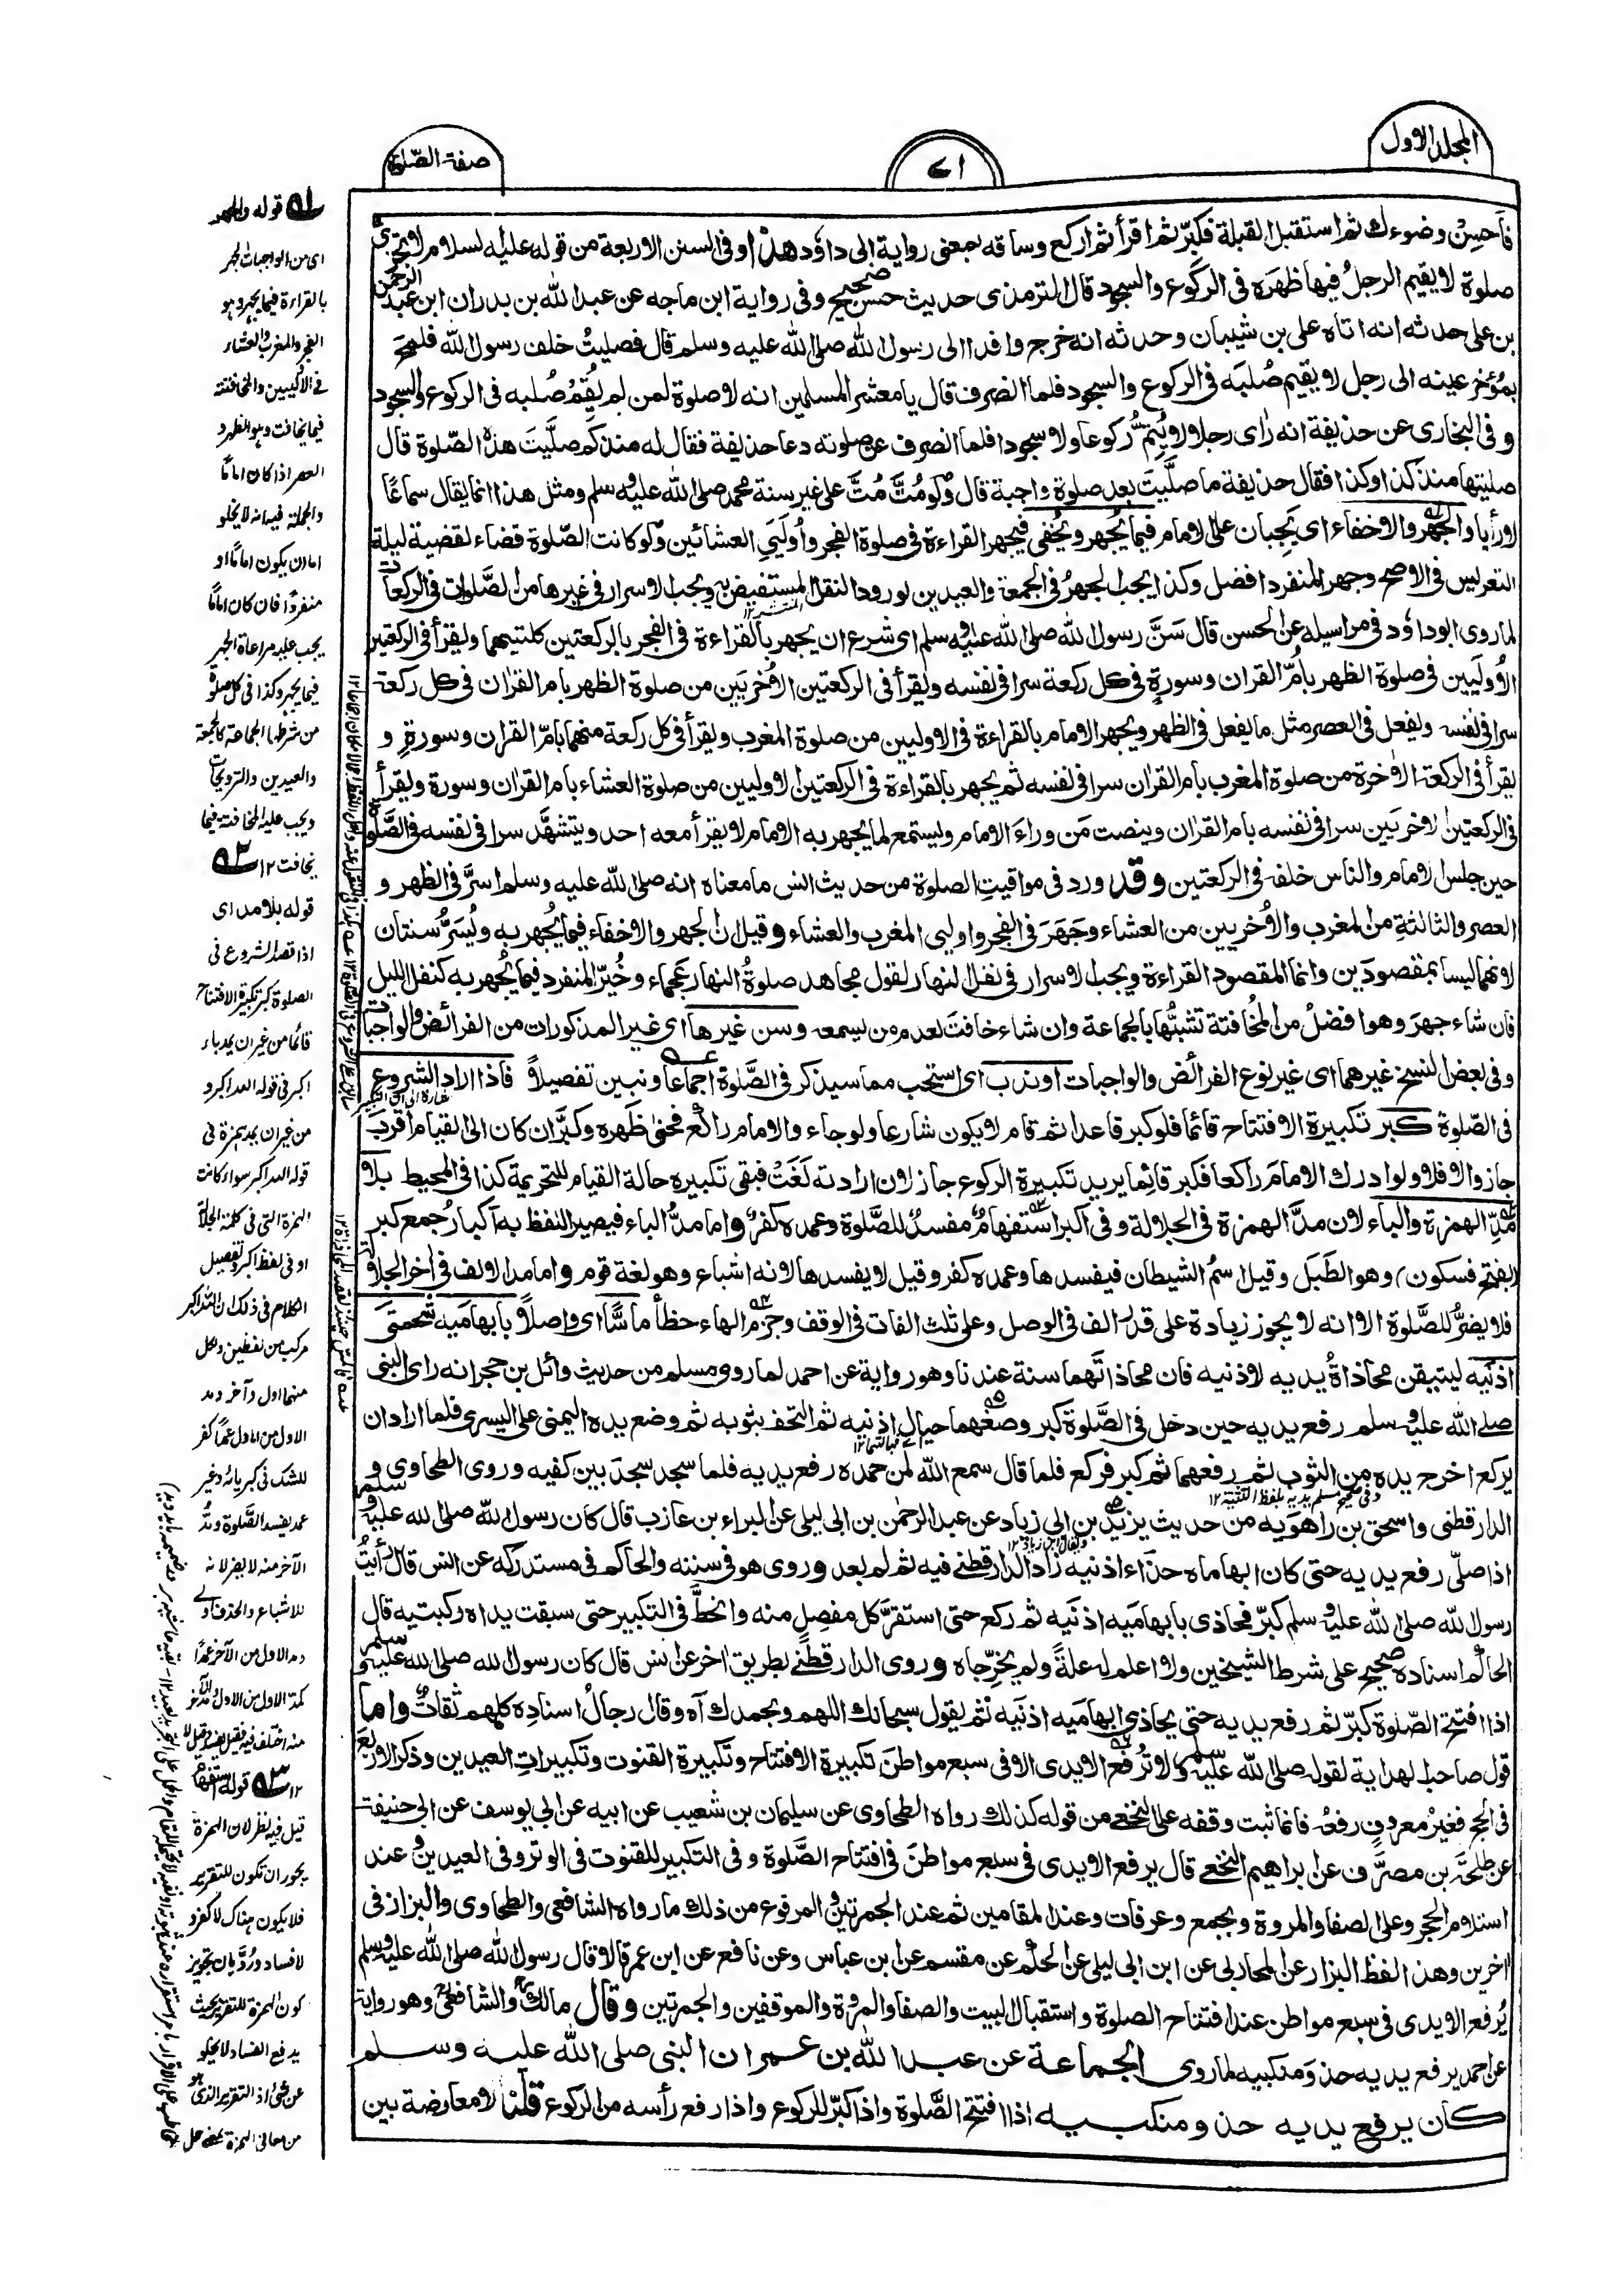 المجلد الاول
٧١
صفة الصّلوة
فأحسِنْ وضوءك ثم استقبل القبلة فكبّر ثم اقرأ ثم اركع وساقه بمعنى رواية ابى داؤد هذا وفى السنن الاربعة من قوله عليه السلام لا تجزئ
صلوة لا يقيم الرجلُ فيها ظهرَه فى الركوع والسجود قال الترمذى حديث حسن صحيح وفى رواية ابن ماجه عن عبد الله بن بدران ابن عبد الرحمن
بن على حدثه انه اتاه على بن شيبان وحدثه انه خرج وافدا الى رسول الله صلى الله عليه وسلم قال فصليتُ خلف رسول الله فلمح
بمُؤخر عينه الى رجل لا يقيم صُلبَه فى الركوع والسجود فلما انصرف قال يا معشر المسلمين انه لا صلوة لمن لم يُقِمْ صُلبه فى الركوع والسجود
وفى البخارى عن حذيفة انه رأى رجلا لا يُتِمُّ ركوعا ولا سجودا فلما انصرف عن صلوته دعا حذيفة فقال له منذ كم صلَّيتَ هذه الصّلوة قال
صليتها منذ كذا وكذا فقال حذيفة ما صلَّيتَ بعد صلوة واجبة قال ولو مُتَّ مُتَّ على غير سنة محمد صلى الله عليه وسلم ومثل هذا انما يقال سماعًا
لا رأيا والجهر والاخفاء اى يَجِبان على الامام فيما يُجهر ويُخفى فيجهر القراءة فى صلوة الفجر وأُولَيَىِ العشائين ولو كانت الصّلوة قضاء لقضية ليلة
التعريس فى الاصح وجهر المنفرد افضل وكذا يجب الجهرُ فى الجمعة والعيدين لورود النقل المستفيض ويجب الاسرار فى غيرها من الصَّلوات فى الركعات
لما روى ابوداؤد فى مراسيله عن الحسن قال سَنَّ رسول الله صلى الله عليه وسلم اى شرع ان يجهر بالقراءة فى الفجر بالركعتين كلتيهما ويقرأ فى الركعتين
الأُوليين فى صلوة الظهر بأمّ القرآن وسورةٍ فى كل ركعة سرا فى نفسه ويقرأ فى الركعتين الأُخريَين من صلوة الظهر بام القرآن فى كل ركعة
سرا فى نفسه ويفعل فى العصر مثل ما يفعل فى الظهر ويجهر الامام بالقراءة فى الاوليين من صلوة المغرب ويقرأ فى كل ركعة منهما بامّ القرآن وسورةٍ و
يقرأ فى الركعة الاخرة من صلوة المغرب بام القرآن سرا فى نفسه ثم يجهر بالقراءة فى الركعتين الاوليين من صلوة العشاء بام القرآن وسورة ويقرأ
فى الركعتين الاخريَين سرا فى نفسه بام القرآن وينصت مَن وراءَ الامام ويستمع لما يجهر به الامام لا يقرأ معه احد ويتشهَّد سرا فى نفسه فى الصَّلوة
حين جلس الامام والناس خلفه فى الركعتين وقد ورد فى مواقيتِ الصلوة من حديث انس ما معناه انه صلى الله عليه وسلم اسرَّ فى الظهر و
العصر والثالثةِ من المغرب والأُخريين من العشاء وجَهَرَ فى الفجر واوليى المغرب والعشاء وقيل ان الجهر والاخفاء فيما يُجهر به ويُسَرُّ سنتان
لانهما ليسا بمقصودَين وانما المقصود القراءة ويجب الاسرار فى نفل النهار لقول مجاهد صلوةُ النهار عجماء وخُيّر المنفرد فيما يُجهر به كنفل الليل
فان شاء جهرَ وهوا فضلُ من المخُافتة تشبّهًا بالجماعة وان شاء خافتَ لعدم من يسمعه وسن غيرها اى غير المذكورات من الفرائض والواجبات
وفى بعض النسخ غيرهما اى غير نوع الفرائض والواجبات او ندب اى استحب مما سيذكر فى الصَّلوة اجماعا ونبين تفصيلاً فاذا اراد الشروع
فى الصّلوة كبر تكبيرة الافتتاح قائما فلو كبر قاعدا ثم قام لا يكون شارعا ولو جاء والامام راكع فحنى ظهره وكبَّر ان كان الى القيام اقربَ
جاز والا فلا ولو ادرك الامامَ راكعا فكبر قائما يريد تكبيرة الركوع جاز لان ارادته لَغَتْ فبقى تكبيره حالة القيام للتحريمة كذا فى المحيط بلا
مَدِّ الهمزة والباء لان مدَّ الهمزة فى الجلالة وفى اكبر استفهامٌ مفسدٌ للصَّلوة وعمده كفرٌ واما مدُّ الباء فيصير اللفظ به اكبار جمع كبر
(بفتح فسكون) وهو الطَبَل وقيل اسمُ الشيطان فيفسدها وعمده كفر وقيل لا يفسدها لانه اشباع وهو لغة قوم واما مد الالف فى اخر الجلالة
فلا يضرُّ للصَّلوة الا انه لا يجوز زيادة على قدر الف فى الوصل وعلى ثلث الفات فى الوقف وجزم الهاء خطأ ماسًّا اى واصلاً بابهامَيه شحمتى
اذنَيه ليتيقن محاذاةُ يديه لاذنيه فان محاذاتَهما سنة عندنا وهو رواية عن احمد لما روى مسلم من حديث وائل بن حجر انه راى النبى
صلى الله عليه وسلم رفع يديه حين دخل فى الصَّلوة كبر وصفهما حيال اذنيه ثم التحف بثوبه ثم وضع يده اليمنى على اليسرى فلما اراد ان
يركع اخرج يده من الثوب ثم رفعهما ثم كبر فركع فلما قال سمع الله لمن حمده رفع يديه فلما سجد سجد بين كفيه وروى الطحاوى و
الدارقطنى واسحق بن راهَوَيه من حديث يزيد بن ابى زياد عن عبد الرحمٰن بن ابى ليلى عن البراء بن عازب قال كان رسول الله صلى الله عليه وسلم
اذا صلّى رفع يديه حتى كان ابهاماه حذاء اذنيه زاد الدارقطنى فيه ثم لم يعد وروى هو فى سننه والحاكم فى مستدركه عن انس قال رأيتُ
رسول الله صلى الله عليه وسلم كبّر فحاذى بابهامَيه اذنَيه ثم ركع حتى استقرَّ كل مفصِل منه وانحطَّ فى التكبير حتى سبقت يداه ركبتيه قال
الحاكم اسناده صحيح على شرط الشيخين ولا اعلم له علةً ولم يخرّجاه وروى الدارقطنى بطريق اخر عن انس قال كان رسول الله صلى الله عليه وسلم
اذا افتتح الصّلوة كبّر ثم رفع يديه حتى يحاذى ابهامَيه اذنَيه ثم يقول سبحانك اللهم وبحمدك آه وقال رجالُ اسنادِه كلهم ثقاتٌ واما
قول صاحب الهداية لقوله صلى الله عليه وسلم لا تُرفع الايدى الا فى سبع مواطنَ تكبيرة الافتتاح وتكبيرة القنوت وتكبيراتِ العيدين وذكر الاربع
فى الحج فغيرُ معروفٍ رفعُه فانما ثبت وقفه على النخعى من قوله كذلك رواه الطحاوى عن سليمان بن شعيب عن ابيه عن ابى يوسف عن ابى حنيفة
عن طلحة بن مصرَّف عن ابراهيم النخعى قال يرفع الايدى فى سبع مواطنَ فى افتتاح الصَّلوة وفى التكبير للقنوت فى الوتر وفى العيدين وعند
استلام الحجر وعلى الصفا والمروة وبجمع وعرفات وعند المقامين ثم عند الجمرتين والمرفوع من ذلك ما رواه الشافعى والطحاوى والبزار فى
اخرين وهذا لفظ البزار عن المحاربى عن ابن ابى ليلى عن الحكم عن مقسم عن ابن عباس وعن نافع عن ابن عمر قالا قال رسول الله صلى الله عليه وسلم
يُرفع الايدى فى سبع مواطن عند افتتاح الصلوة واستقبال البيت والصفا والمروة والموقفين والجمرتين وقال مالك والشافعى وهو رواية
عن احمد يرفع يديه حذو منكبيه لما روى الجماعة عن عبد الله بن عمر ان النبى صلى الله عليه وسلم
كان يرفع يديه حذو منكبيه اذا افتتح الصَّلوة واذا كبّر للركوع واذا رفع رأسه من الركوع قلنا لا معارضة بين
قوله والجهر
اى من الواجبات الجهر
بالقراءة فيما يجهر وهو
الفجر والمغرب والعشاء
فى الاوليين والمخافتة
فيما يخافت وهو الظهر و
العصر اذا كان اماما
والجملة فيه انه لا يخلو
اما ان يكون اماما او
منفردًا فان كان امامًا
يجب عليه مراعاة الجهر
فيما يجهر وكذا فى كل صلوة
من شرطها الجماعة كالجمعة
والعيدين والترويحات
ويجب عليه المخافتة فيما
يخافت ١٢
قوله بلا مد اى
اذا قصد الشروع فى
الصلوة كبر تكبيرة الافتتاح
قائما من غير ان يمد باء
اكبر فى قوله الله اكبر و
من غير ان يمد همزة فى
قوله الله اكبر سواء كانت
الهمزة التى فى كلمة الجلالة
او فى لفظ اكبر وتفصيل
الكلام فى ذلك ان الله اكبر
مركب من لفظين ولكل
منهما اول وآخر ومد
الاول من الاول عمدًا كفر
للشك فى كبريائه وغير
عمد يفسد الصَّلوة ومدُّ
الآخر منه لا يضر لانه
للاشباع والحذف اولى
ومد الاول من الآخر عمدًا
كمد الاول من الاول ومد الآخر
منه اختلف فيه فقيل يفسد وقيل لا
١٢ قوله استفهام
قيل فيه نظر لان الهمزة
يجوز ان تكون للتقرير
فلا يكون هناك لا كفر و
لا فساد ورُدَّ بان تجويز
كون الهمزة للتقرير بحيث
يدفع الفساد لا يخلو
عن شئ اذ التقرير الذى هو
من معانى الهمزة